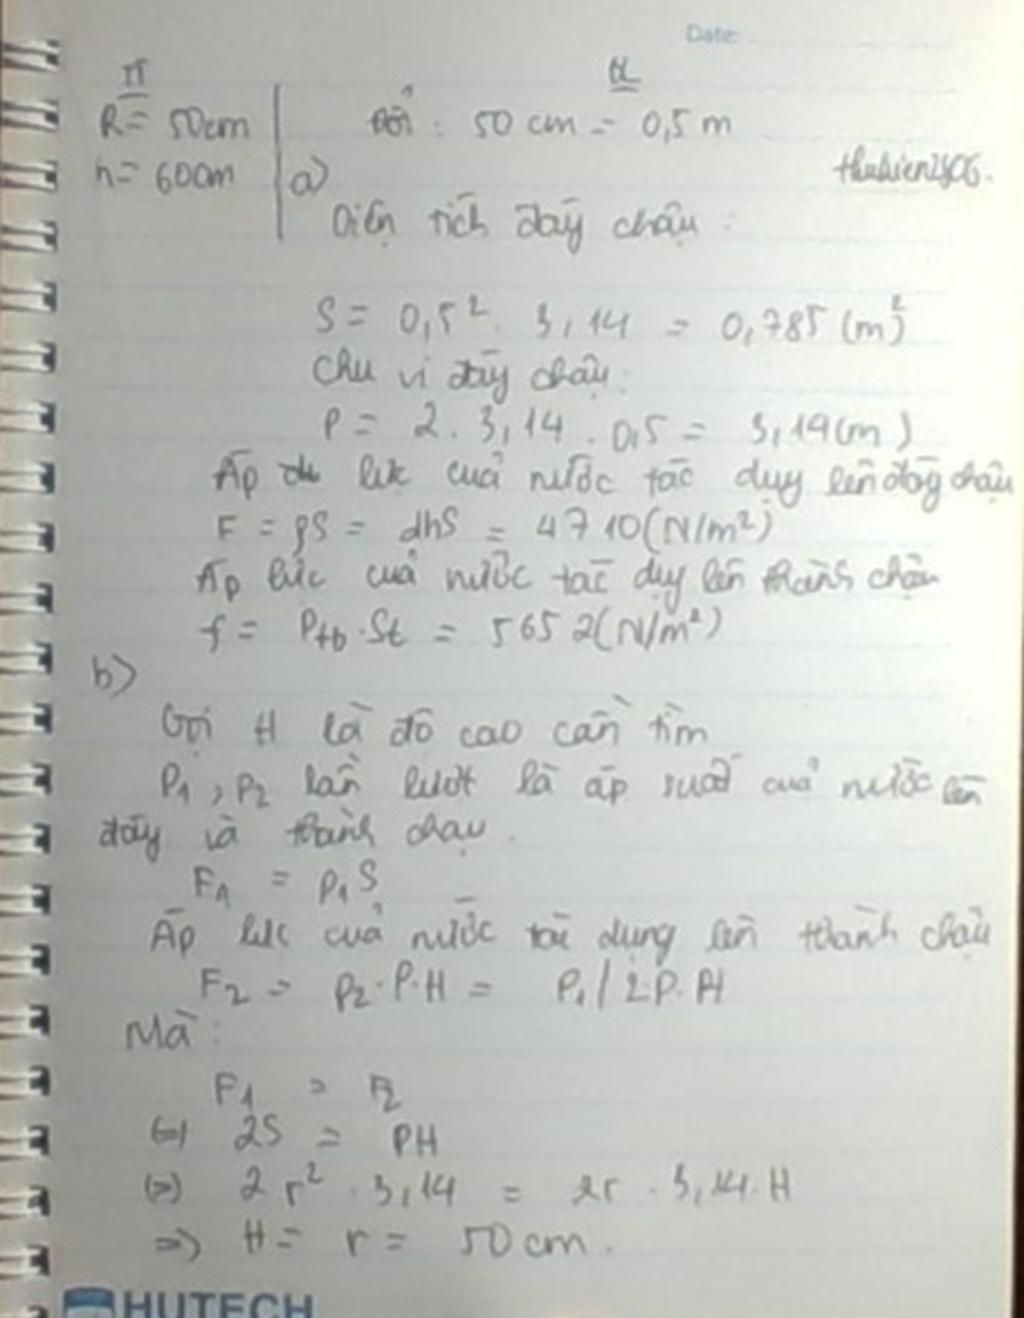 Date:
TT
GL
R = 50cm
Đổi : 50 cm = 0,5 m
h = 60cm
thuhien2406.
a)
Diện tích đáy chậu :
S = 0,5² . 3,14 = 0,785 (m²)
Chu vi đáy chậu:
P = 2. 3,14 . 0,5 = 3,14(m)
Áp lực cuả nước tác dụy lên đáy chậu
F = pS = dhS = 4710(N/m²)
Áp lực cuả nước tác dụy lên thành chậu
f = Ptb . St = 5652(N/m²)
b)
Gọi H là độ cao cần tìm
P1 , P2 lần lượt là áp suất cuả nước lên
đáy và thành chậu .
F1 = P1 S
Áp lực cuả nước tác dụng lên thành chậu
F2 = P2 . P . H = P1 / 2 P . H
Mà :
F1 = F2
(=) 2S = PH
(=) 2 r² . 3,14 = 2r . 3,14 . H
=> H = r = 50 cm .
HUTECH